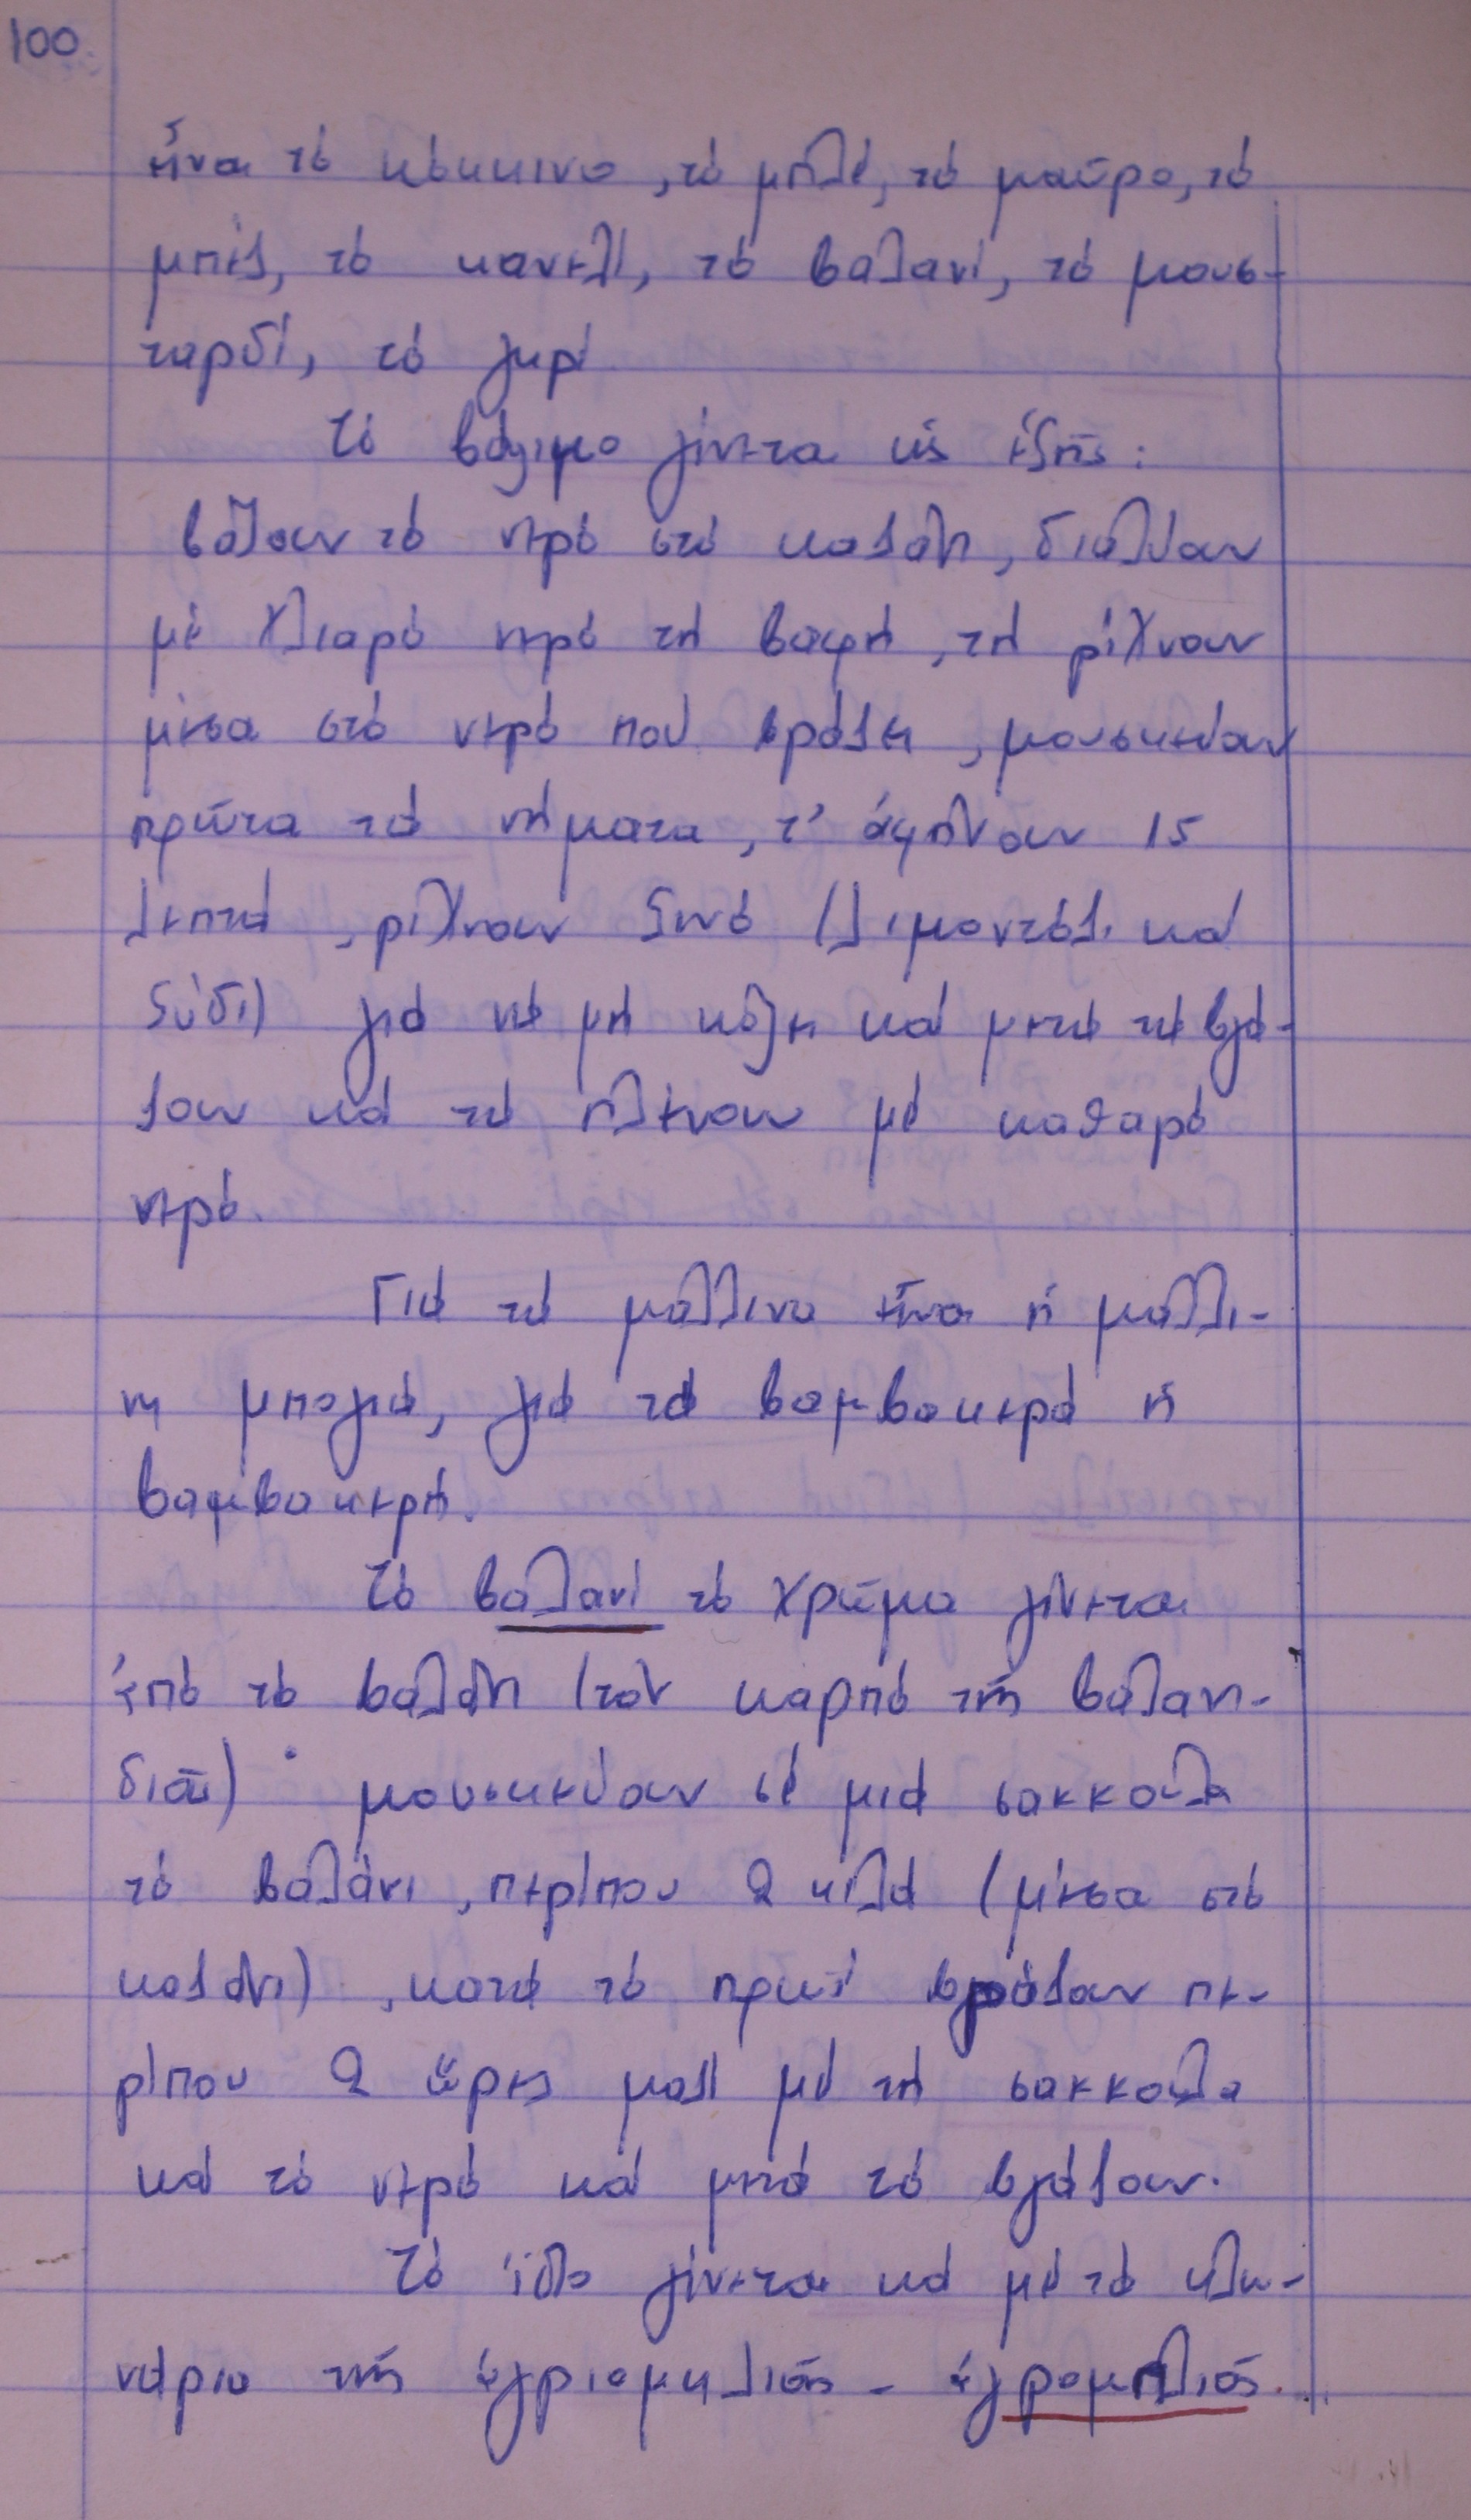 100.
εἶναι τό κόκκινο, τό μπλέ, τό μαῦρο, τό
μπέζ, τό κανελί, τό βαλανί, τό μουσ-
ταρδί, τό γκρί
Τό βάψιμο γίνεται ὡς ἑξῆς:
βάζουν τό νερό στό καζάνι, διαλύουν
μέ χλιαρό νερό τή βαφή, τή ρίχνουν
μέσα στό νερό πού βράζει, μουσκεύουν
πρῶτα τά νήματα, τ' ἀφήνουν 15
λεπτά, ρίχνουν ξινό (λεμοντόζι καί
ξύδι) γιά νά μή κόψη καί μετά τά βγά-
ζουν καί τά πλένουν μέ καθαρό
νερό.
Γιά τά μάλλινα εἶναι ἡ μάλλι-
νη μπογιά, γιά τά βαμβακερά ἡ
βαμβακερή.
Τό βαλανί τό χρῶμα γίνεται
ἀπό τό βαλάνι (τόν καρπό τῆς βαλανι-
διᾶς)· μουσκεύουν σέ μιά σακκούλα
τό βαλάνι, περίπου 2 κιλά (μέσα στό
καζάνι), κατά τό πρωί βράζουν πε-
ρίπου 2 ὧρες μαζί μέ τή σακκούλα
καί τό νερό καί μετά τό βγάζουν.
Τό ἴδιο γίνεται καί μέ τά κλω-
νάρια τῆς ἀγριομηλιᾶς - ἀγρομηλιᾶς.